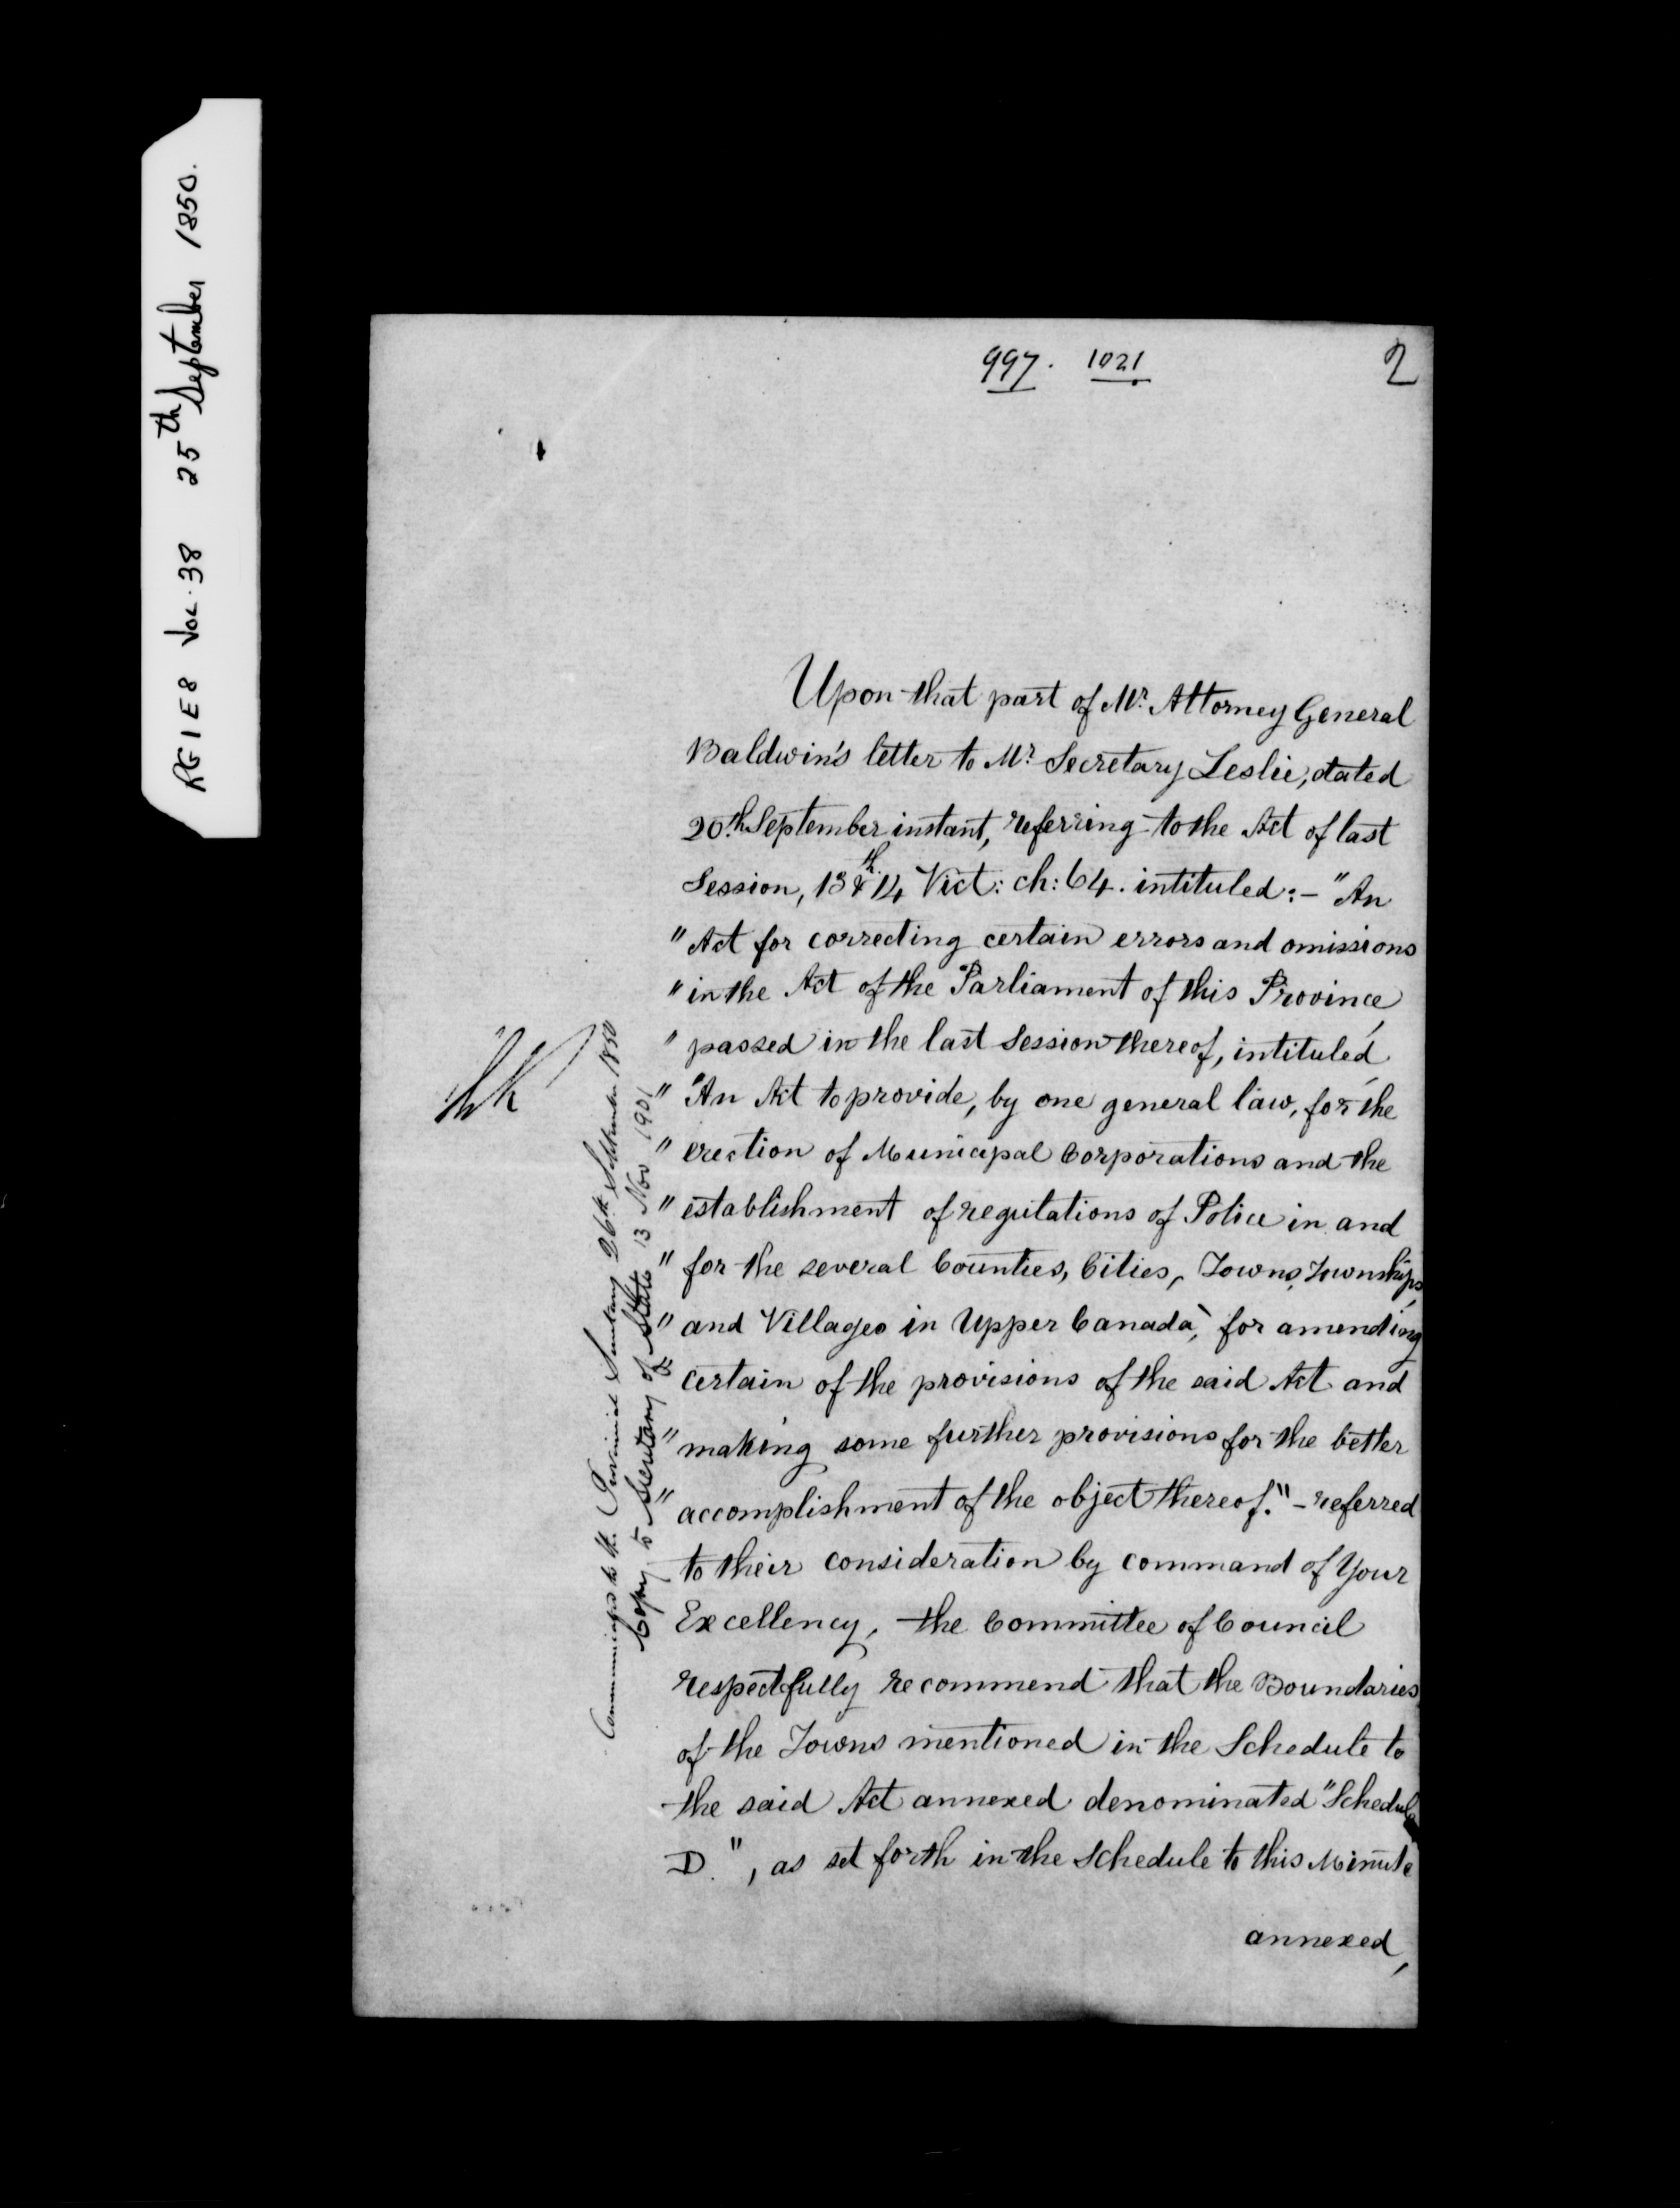 RG 1 E 8 Vol. 38 25th September 1850.
997. 1021
2
Upon that part of Mr. Attorney General
Baldwin's letter to Mr. Secretary Leslie, dated
20th September instant, referring to the Act of last
Session, 13th & 14 Vict: ch: 64. intituled:- "An
" Act for correcting certain errors and omissions
" in the Act of the Parliament of this Province
" passed in the last Session thereof, intituled,
" "An Act to provide, by one general law, for the
" erection of Municipal Corporations and the
" establishment of regulations of Police in and
" for the several Counties, Cities, Towns, Townships,
" and Villages in Upper Canada", for amending
" certain of the provisions of the said Act and
" making some further provisions for the better
" accomplishment of the object thereof." - referred
to their consideration by command of Your
Excellency, the Committee of Council
respectfully recommend that the Boundaries
of the Towns mentioned in the Schedule to
the said Act annexed denominated "Schedule
D.", as set forth in the Schedule to this Minute
annexed,
to the Provincial Secretary 26th September 1850
Copy to Secretary of State 13 Nov 1901